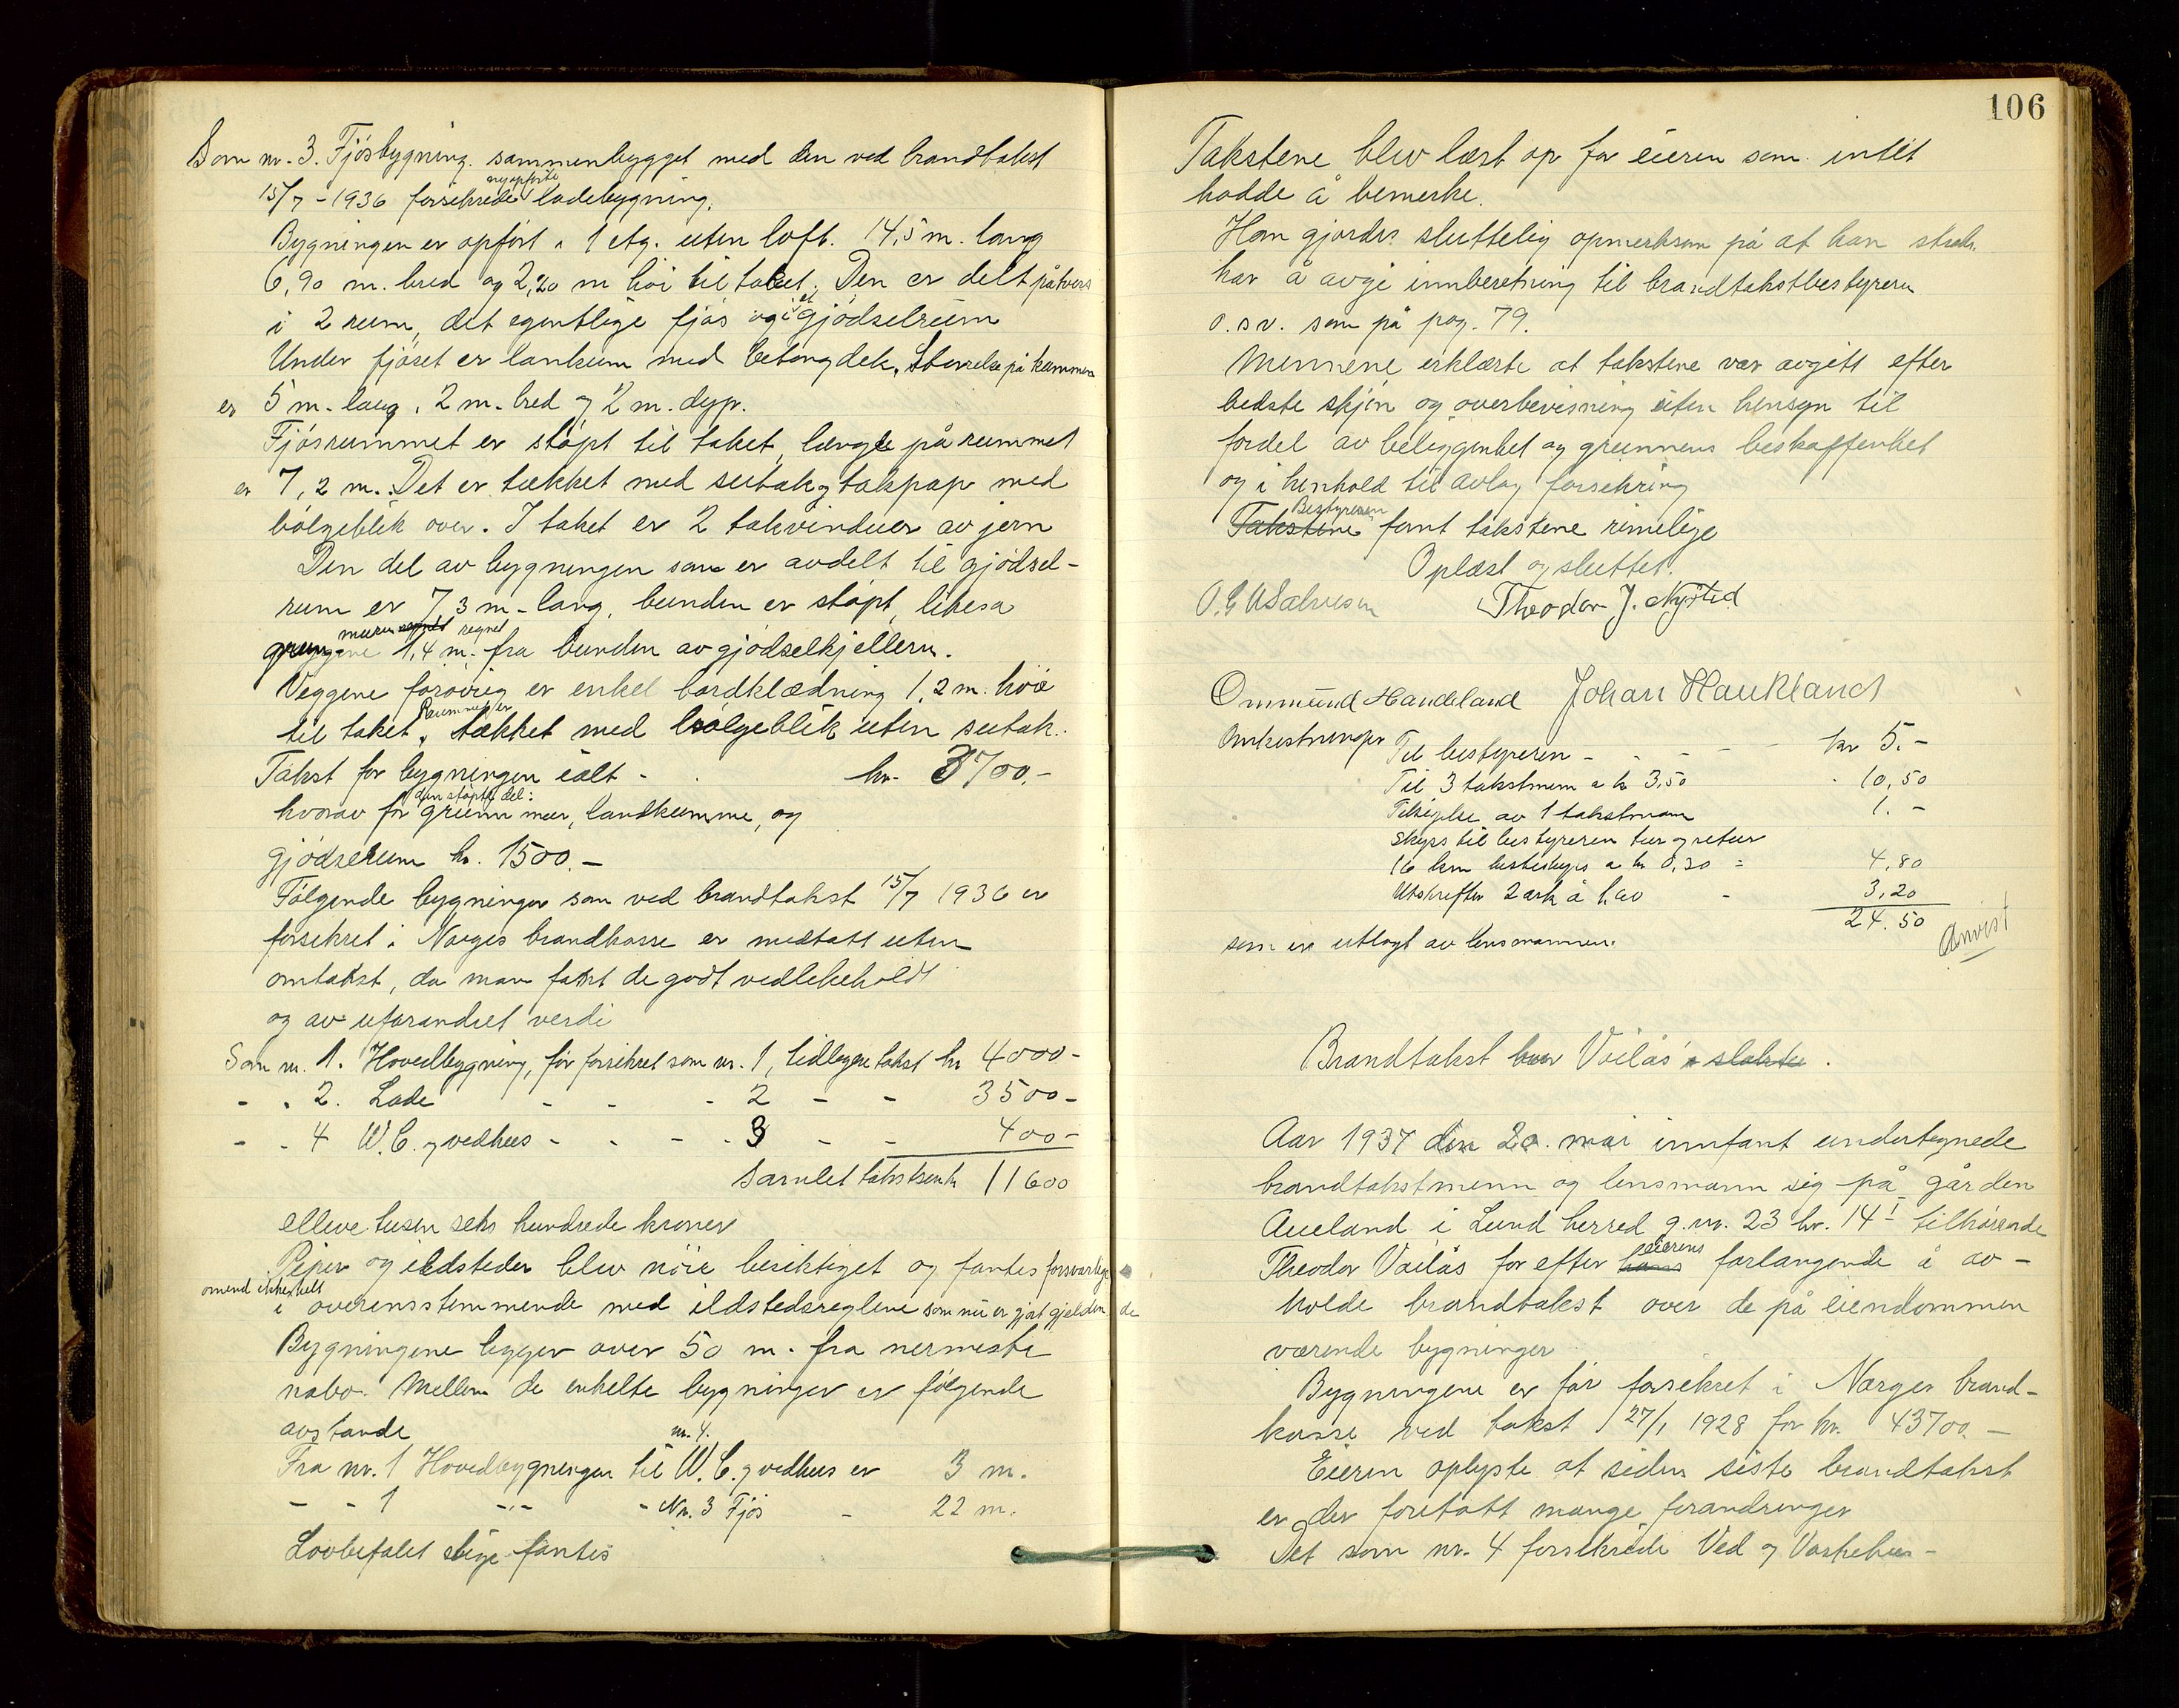 Som nr. 3. Fjøsbygning. sammenbygget med den ved brandtakst
15/7 - 1936 forsikrede nyopførte ladebygning.
Bygningen er opført i 1 etg. uten loft. 14,5 m. lang
6,90 m. bred og 2,20 m høi til taket. Den er delt på tvers
i 2 rum, det egentlige fjøs og i et gjødselrum
Under fjøset er lankum med betong dek. Størrelse på kummen
er 5 m. lang, 2 m. bred og 2 m. dyp.
Fjøsrummet er støpt til taket, længde på rummet
er 7,2 m. Det er tækket med sutak og takpap med
bølgeblik over. I taket er 2 takvinduer av jern
Den del av bygningen som er avdelt til gjødsel-
rum er 7,3 m. lang, bunden er støpt, likesa
grunnmurene regnet 1,4 m. fra bunden av gjødselkjelleren.
Veggene forøvrig er enkel bordklædning 1,2 m. høie
til taket. Rummet er tækket med bølgeblik uten sutak.
Takst for bygningen ialt - kr. 3700.-
hvorav for den støpte del: grunn mur, landkumme, og
gjødselrum kr. 1500.-
Følgende bygninger som ved brandtakst 15/7 1936 er
forsikret i Norges brandkasse er medtatt uten
omtakst, da man fandt de godt vedlikeholdt
og av uforandret verdi
Som nr. 1. Hovedbygning, før forsikret som nr. 1, tidligere takst kr 4000-
- - 2. Lade - - - 2 - - 3500-
- - 4 W.C. og vedhus - - - - 3 - - 400-
Samlet takstsum kr 11600
elleve tusen seks hundrede kroner
Piper og ildsteder blev nøie besiktiget og fantes forsvarlige
omend ikke helt i overensstemmende med ildstedsreglene som nu er gjort gjeldende
Bygningene ligger over 50 m. fra nermeste
nabo. Mellem de enkelte bygninger er følgende
avstande
Fra nr. 1 Hovedbygningen til nr. 4. W.C. og vedhus er 3 m.
- - 1 -.- - Nr. 3 Fjøs - 22 m.
Lovbefalet stige fantes
106
Takstene blev læst op for eieren som intet
hadde å bemerke.
Han gjordes sluttelig opmerksom på at han straks
har å avgi innberetning til brandtakstbestyreren
o.s.v. som på pag. 79.
Mennene erklærte at takstene var avgitt efter
bedste skjøn og overbevisning uten hensyn til
fordel av beliggenhet og grunnens beskaffenhet
og i henhold til avlag forsikring
Takstene Bestyreren fant takstene rimelige
Oplæst og sluttet.
Theodor J. Nysted
Ommund Haudeland Johan Haukland
Omkostninger Til bestyreren - - - - kr 5.-
Til 3 takstmenn a kr 3,50 - 10,50
Tilsigelse av 1 takstmann 1.-
Skyss til bestyreren tur og retur
16 km hesteskyss a kr 0,30 = 4,80
Utskrifter 2 ark à 1,60 - 3,20
24.50
som er utlagt av lensmannen. Anvist
Brandtakst hos Vøilås
Aar 1937 den 20. mai innfant undertegnede
brandtakstmenn og lensmann sig på gården
Aueland i Lund herred g.nr. 23 br. 14 tilhørende
Theodor Vøilås for efter hans eierens forlangende å av-
holde brandtakst over de på eiendommen
værende bygninger
Bygningene er før forsikret i Norges brand-
kasse ved takst 27/1 1928 for kr. 43700.-
Eieren oplyste at siden siste brandtakst
er der foretatt mange forandringer
Det som nr. 4 forsikrede Ved og Vaskehus-